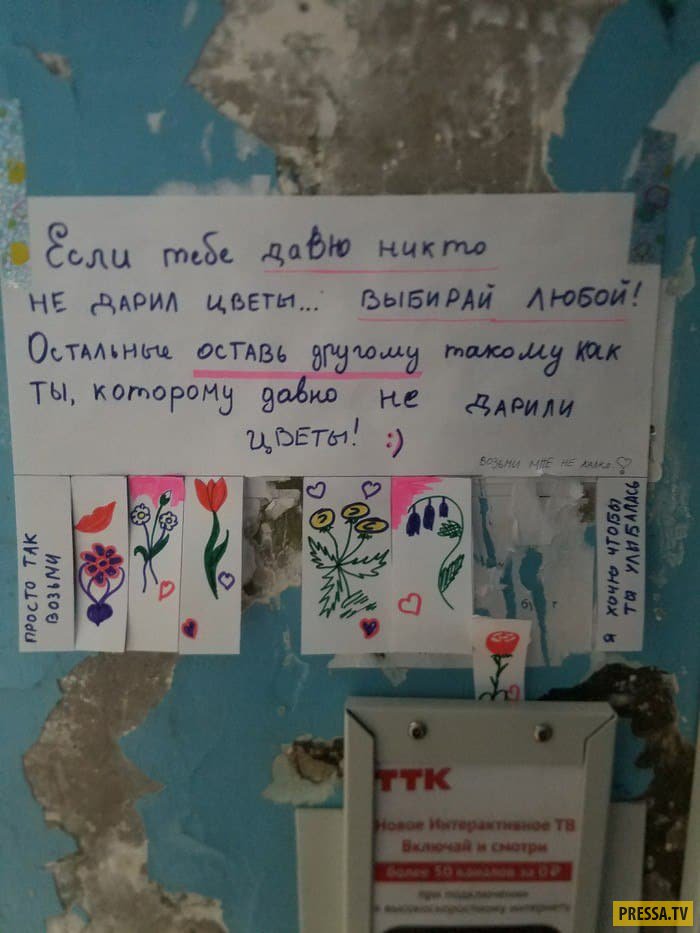 Если тебе давно никто
не дарил цветы... выбирай любой!
Остальные оставь другому такому как
ты, которому давно не дарили
цветы! :)
возьми мне не жалко
просто так
возьми
я хочу чтобы
ты улыбалась
ТТК
Новое Интерактивное ТВ
Включай и смотри
более 50 каналов за 0 ₽
при подключении
к высокоскоростному интернету
PRESSA.TV